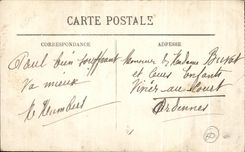 CARTE POSTALE
CORRESPONDANCE
ADRESSE
Paul bien souffrant
va mieux
Monsieur et Madame
et leurs Enfants
Vivier au Court
Ardennes